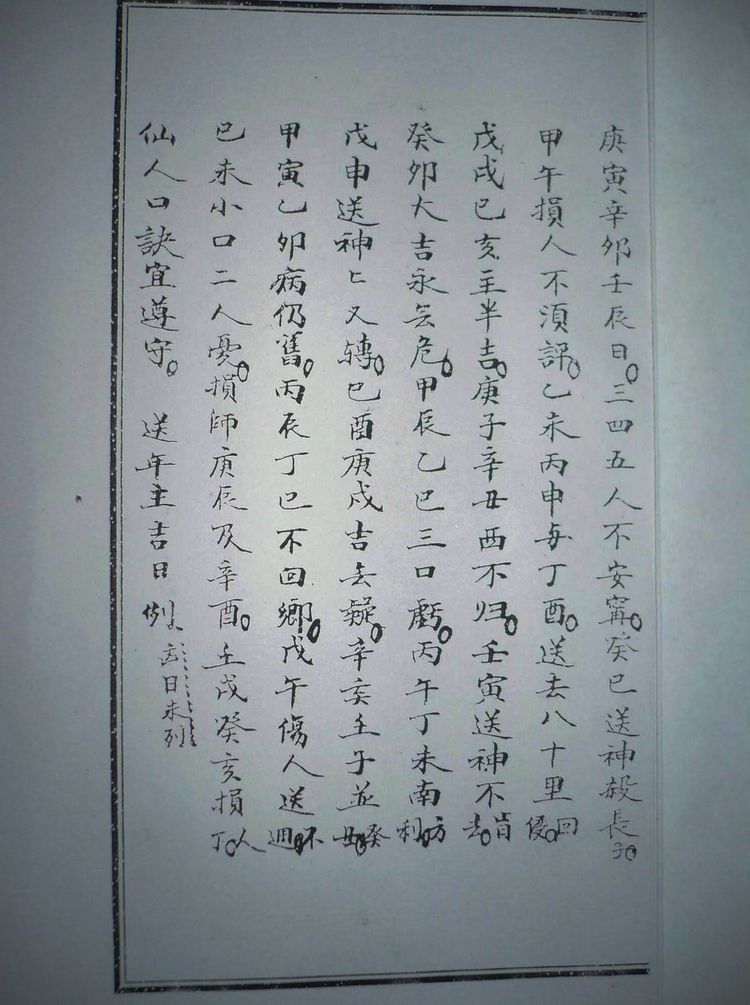 庚寅辛卯壬辰日。三四五人不安寧。癸巳送神殺長子。
甲午損人不須評。乙未丙申与丁酉。送去八十里回侵。
戊戌巳亥主半吉。庚子辛丑西不归。壬寅送神不肯去。
癸卯大吉永無危。甲辰乙巳三口虧。丙午丁未南方利。
戊申送神匕又轉。巳酉庚戌吉無疑。辛亥壬子並癸丑。
甲寅乙卯病仍舊。丙辰丁巳不回鄉。戊午傷人送不
巳未小口二人憂。損師庚辰及辛酉。壬戌癸亥損人丁。
仙人口訣宜遵守。 送年主吉日例、
日未列